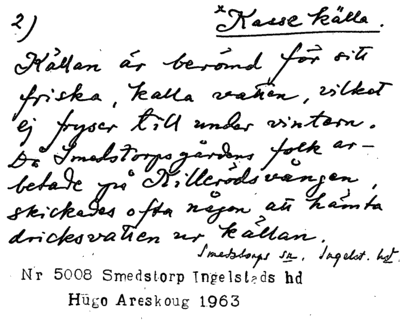 2) × Kasse källa.
Källan är berömd för sitt
friska, kalla vatten, vilket
ej fryser till under vintern.
Då Smedstorpsgårdens folk ar-
betade på Killerödsvången,
skickades ofta någon att hämta
dricksvatten ur källan.
Smedstorps sn. Ingelst. hd.
Nr 5008 Smedstorp Ingelstads hd
Hugo Areskoug 1963